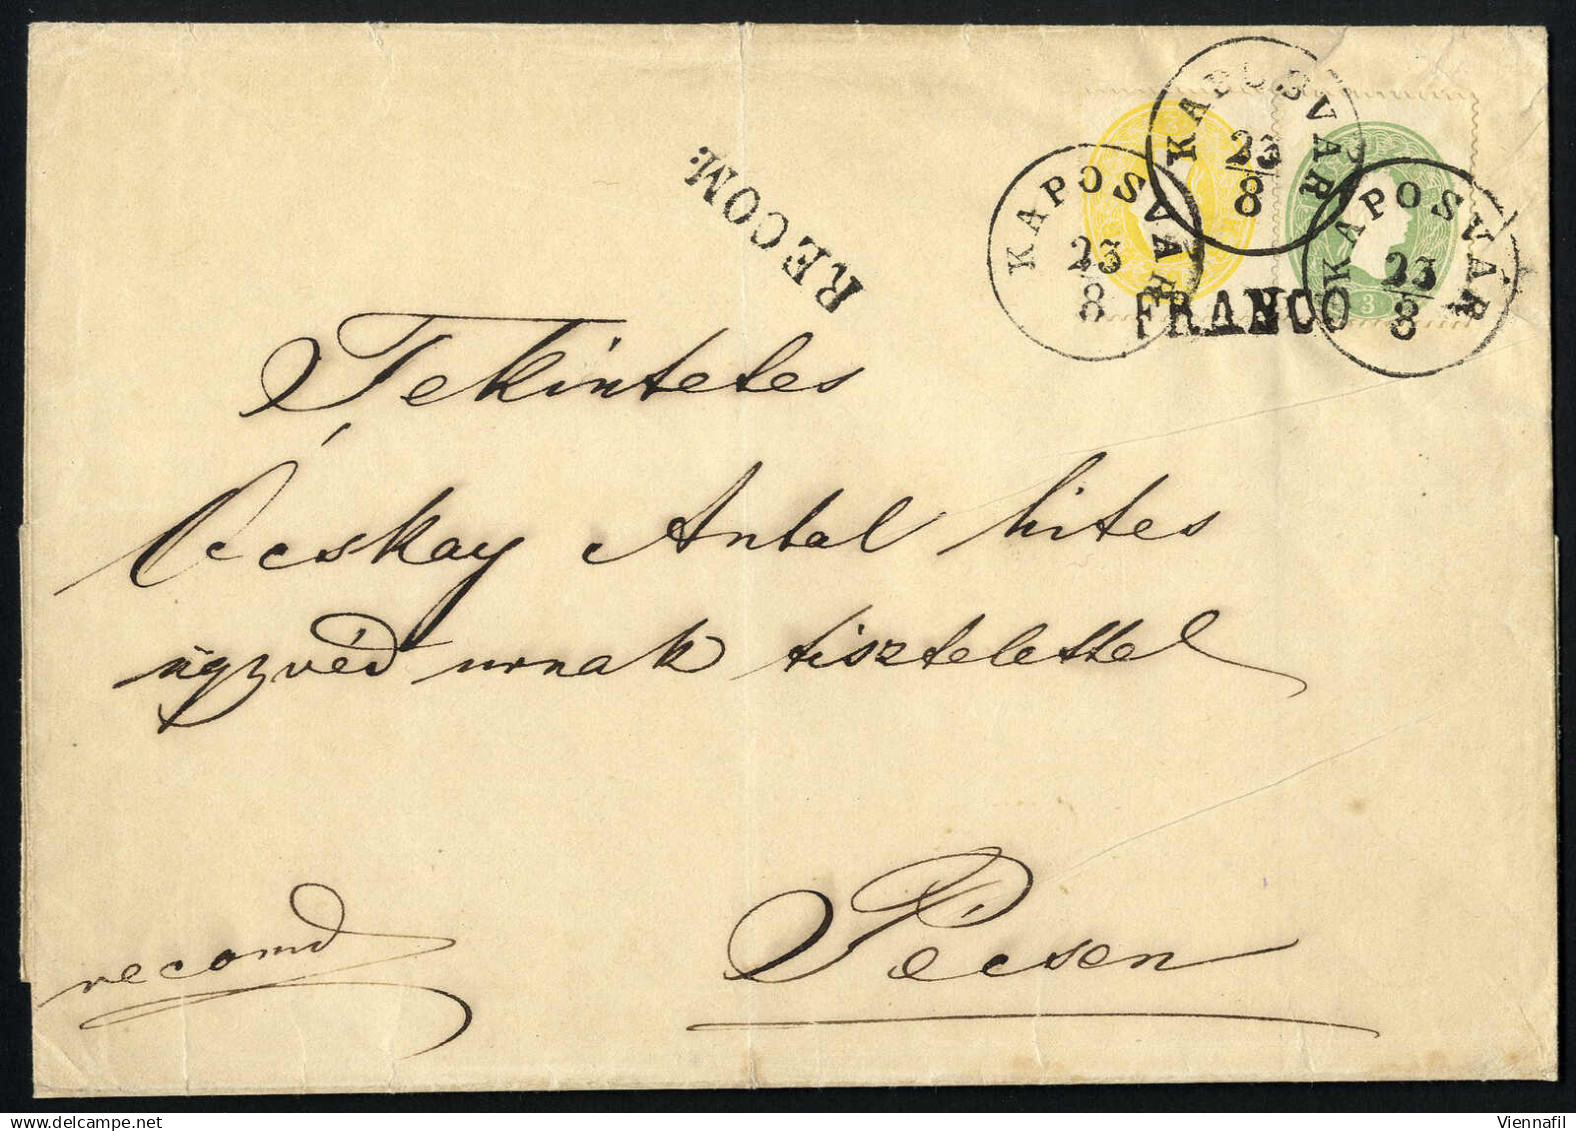 KAPOSVÁR
23
8
KAPOSVÁR
23
8
KAPOSVÁR
23
8
3
RECOM:
FRANCO
Tekintetes
Ócskay Antal hites
ügyvéd urnak tisztelettel
recomd
Pécsen
Viennafil